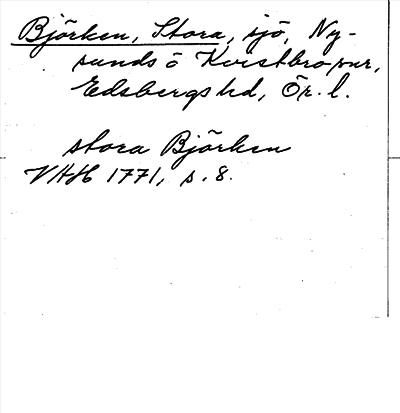 Björken, Stora, sjö, Ny-
sunds o Kvistbro snr,
Edsbergs hd, Ör. l.
stora Björken
VHAH 1771, s. 8.